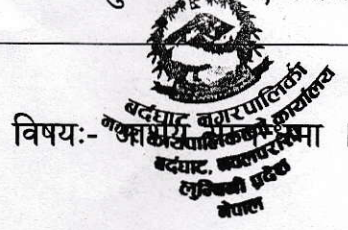 बर्दघाट नगरपालिका
नगर कार्यपालिकाको कार्यालय
विषयः-
बर्दघाट, नवलपरासी
लुम्बिनी प्रदेश
नेपाल